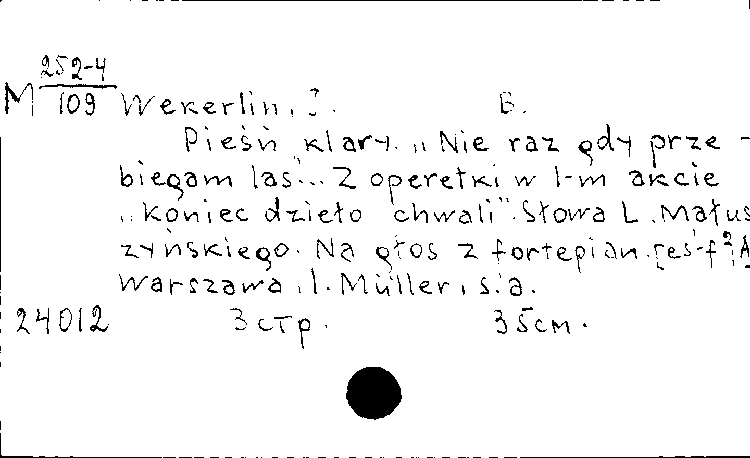 252-4
M 109 Wekerlin, J. B.
Pieśń Klary. „Nie raz gdy prze-
biegam las"... Z operetki w 1-m akcie
„Koniec dzieło chwali". Słowa L. Matus
zyńskiego. Na głos z fortepian. [es-f²; A
Warszawa, I. Müller, s.a.
24012 3 стр. 35 см.